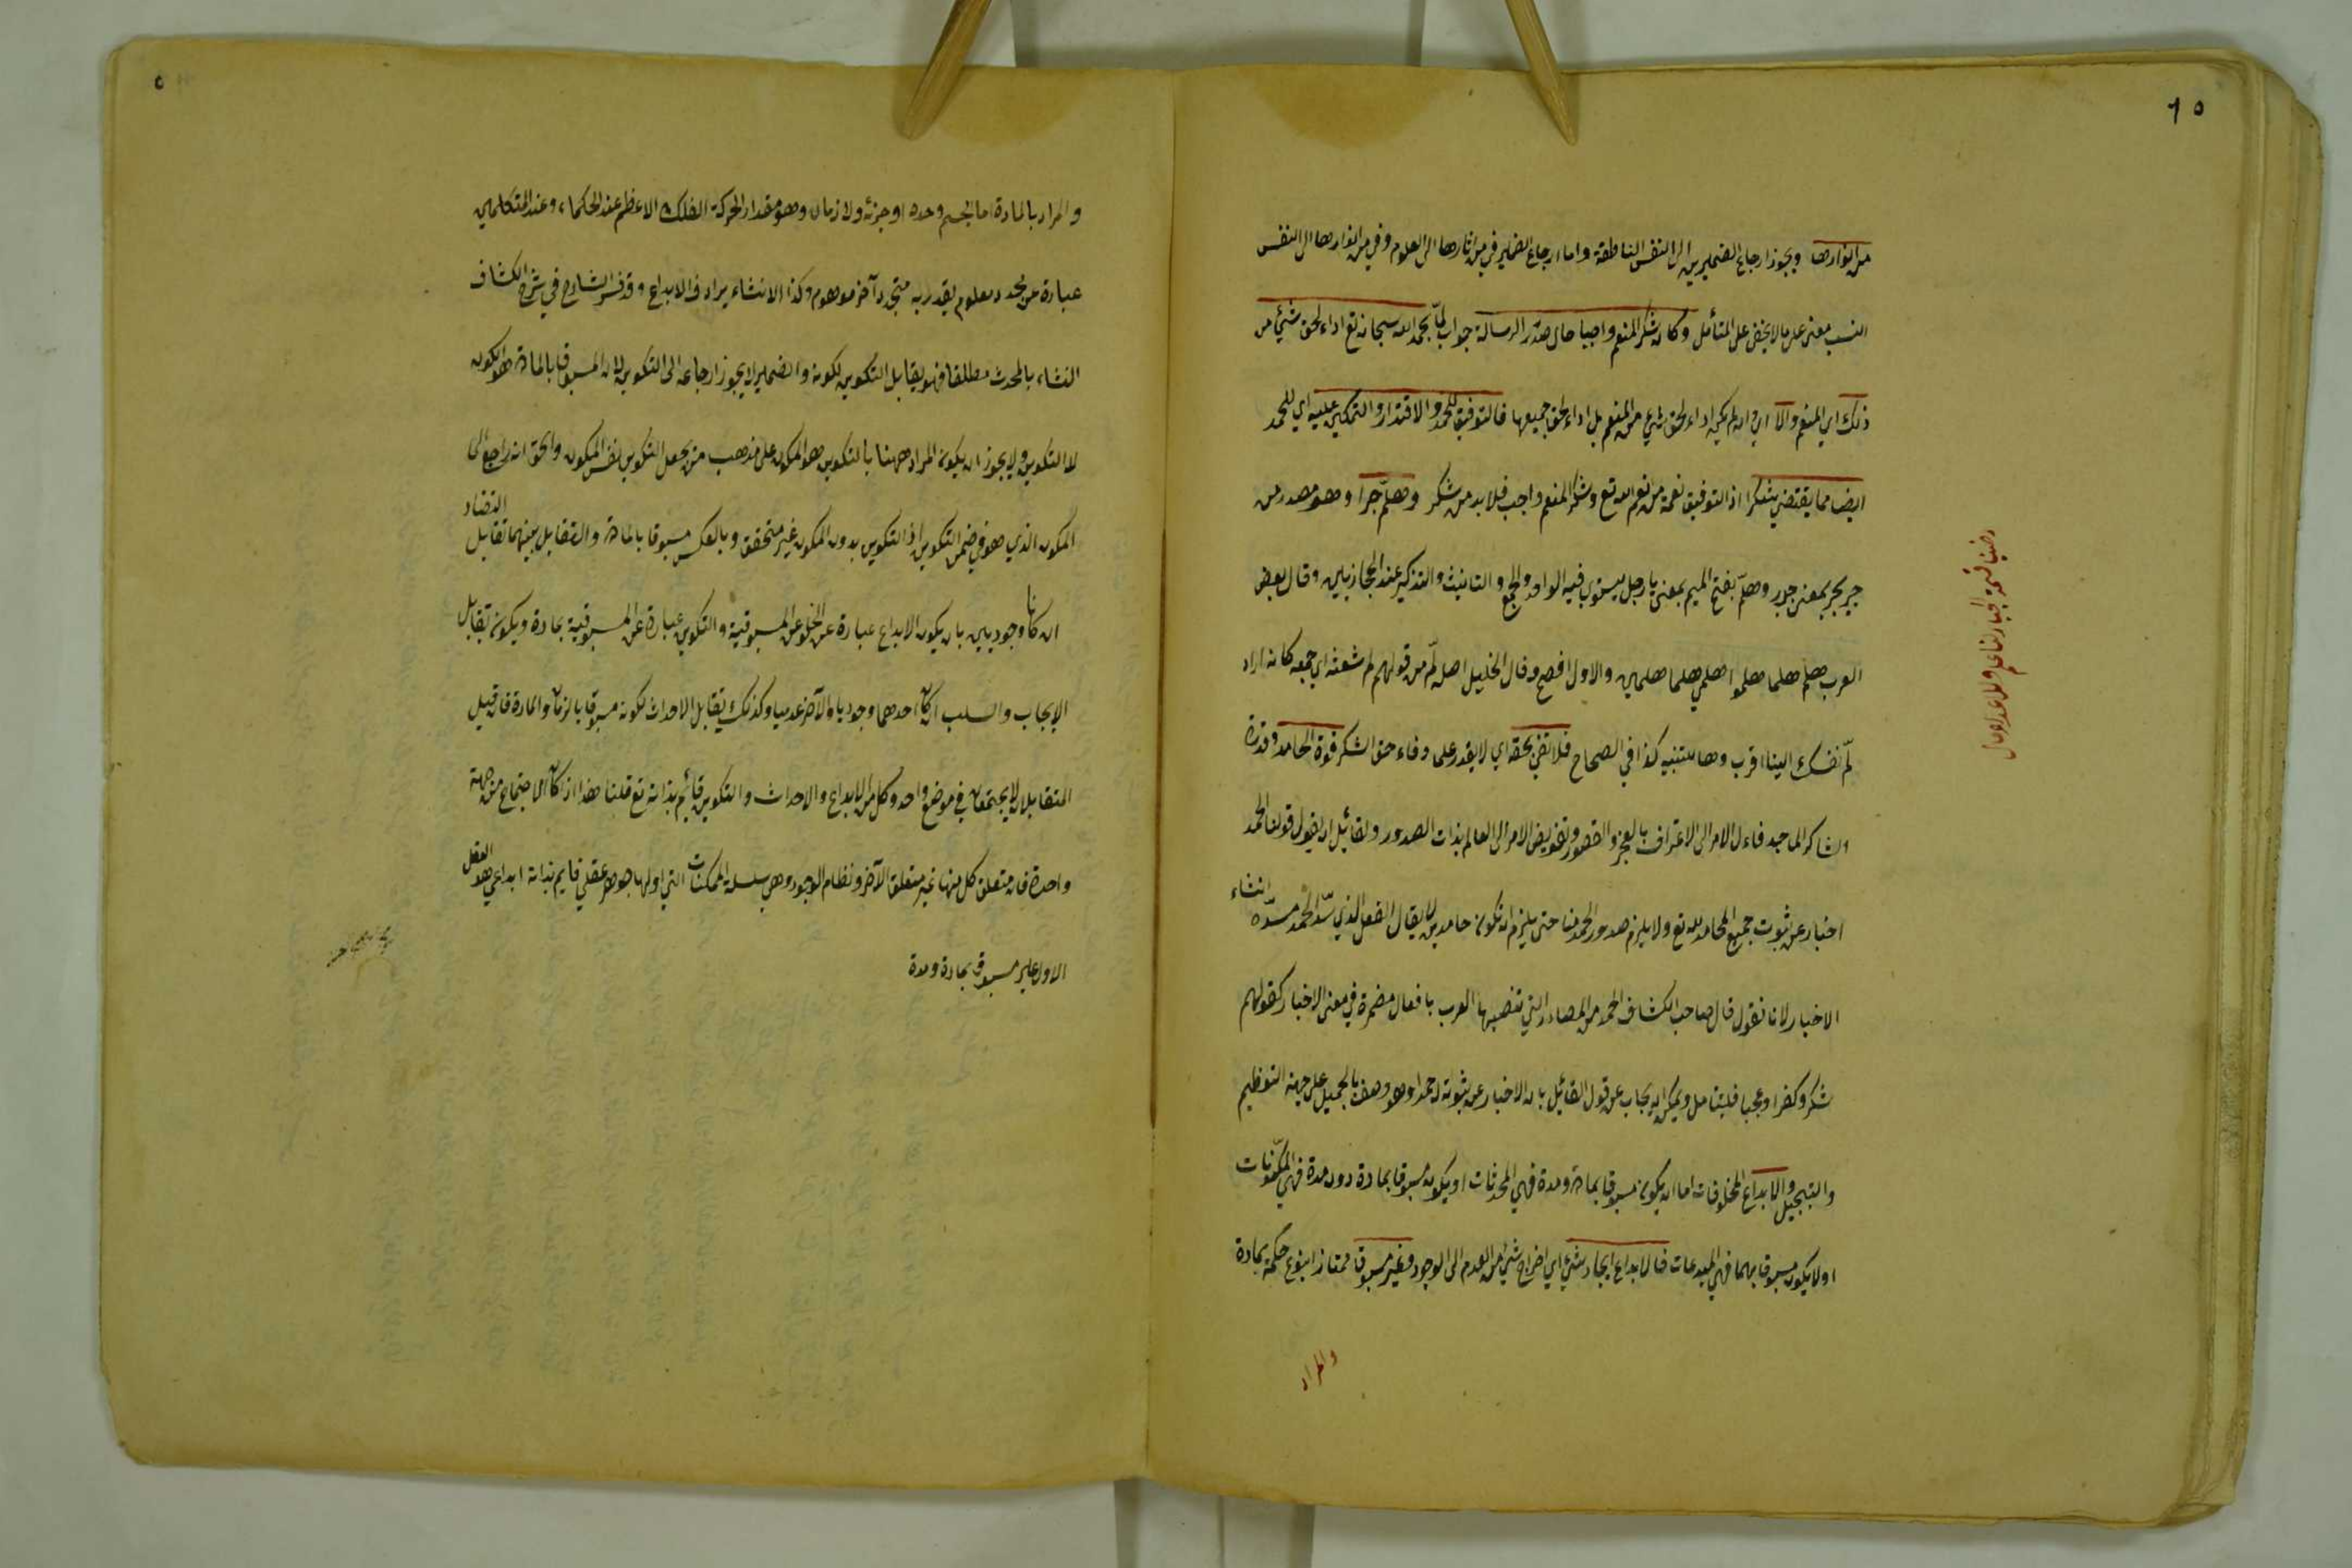 ٦٥
من انوارها ويجوز ارجاع الضميرين الى النفس الناطقة واما ارجاع الضمير في من اثارها الى العلوم وفي من انوارها الى النفس
انسب معنى على ما لا يخفى على المتأمل وكان شكر المنعم واجبا حال صدر الرسالة جواب لما بحمد الله سبحانه تع اداء لحق شيء من
ذلك اي المنعم والا اي وان لم يكن اداء لحق شيء من المنعم بل اداء لحق جميعها فالتوفيق للحمد والاقتدار والتمكين عليه اي للحمد
ايضا مما يقتضي شكرا اذ التوفيق نعمة من نعم الله تع وشكر المنعم واجب فلا بد من شكر وهلم جرا وهو مصدر من
جر يجر بمعنى جرر وهلمّ بفتح الميم بمعنى يا رجل يستوي فيه الواحد والجمع والتانيث والتذكير عند الحجازيين وقال بعض
العرب هلم هلما هلموا هلمي هلما هلمين والاول افصح وقال الخليل اصله لمّ من قولهم لم شعثه اي جمعه كانه اراد
لمّ نفسك الينا اقرب وها للتنبيه كذا في الصحاح فلا تفي بحقه اي لا يقدر على وفاء حق الشكر قوة الحامد وقدرة
الشاكر الماجد فاءل الامر الى الاعتراف بالعجز والقصور وتفويض الامر الى العالم بذات الصدور ولقائل ان يقول قولنا الحمد
اخبار عن ثبوت جميع المحامد لله تع ولا يلزم صدور الحمد منا حتى يلزم ان نكون حامدين لا يقال الفعل الذي سدّ الحمد مسدّه انشاء
الاخبار لانا نقول قال صاحب الكشاف الحمد من المصادر التي تنصبها العرب بافعال مضمرة في معنى الاخبار كقولهم
شكرا وكفرا وعجبا فليتأمل ويمكن ان يجاب عن قول القائل بان الاخبار عن ثبوته له حمد اذ هو وصف بالجميل على جهة التعظيم
والتبجيل والابداع المخلوقات اما ان يكون مسبوقا بمادة ومدة فهي المحدثات او يكون مسبوقا بمادة دون مدة فهي المكونات
اولا يكون مسبوقا بهما فهي المبدعات فالابداع ايجاد شيء اي اخراج شيء من العدم الى الوجود وغير مسبوق ممتازا بنوع حكمة بمادة
والمراد
والمراد بالمادة اما الجسم وحده او جزئه ولا زمان وهو مقدار الحركة الفلك الاعظم عند الحكماء وعند المتكلمين
عبارة عن تجدد معلوم يقدر به متجدد آخر موهوم وكذا الانشاء يرادف الابداع وقد فسر الشارح في شرح الكشاف
انشاء بالمحدث مطلقا فهو يقابل التكوين لكونه والضمير لا يجوز ارجاعه الى التكوين لان المسبوق بالمادة هو المكون
لا التكوين ولا يجوز ان يكون المراد ههنا بالتكوين هو المكون على مذهب من يجعل التكوين نفس المكون والحق انه راجع الى
المكون الذي هو في ضمن التكوين اذ التكوين بدون المكون غير متحقق وبالعكس مسبوقا بالمادة والتقابل بينهما تقابل التضاد
ان كانا وجوديين بان يكون الابداع عبارة عن الخلو عن المسبوقية والتكوين عبارة عن المسبوقية بمادة ويكون تقابل
الايجاب والسلب ان كان احدهما وجوديا والآخر عدميا وكذلك يقابل الاحداث لكونه مسبوقا بالزمان والمادة فان قيل
المتقابلان لا يجتمعان في موضع واحد وكل من الابداع والاحداث والتكوين قائم بذاته تع قلنا هذا اذا كان الاجتماع من جهة
واحدة فان متعلق كل منها غير متعلق الآخر ونظام الوجود وهي سلسلة الممكنات التي اولها جوهر عقلي قايم بذاته ابداعي هو العقل
الاول غير مسبوق بمادة ومدة